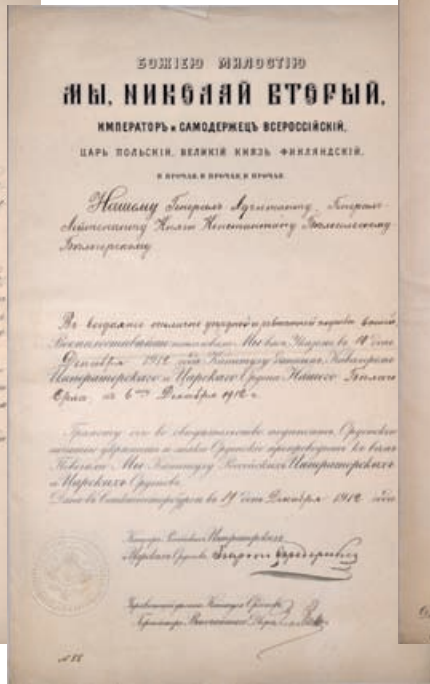 БОЖІЕЮ МИЛОСТІЮ
МЫ, НИКОЛАЙ ВТОРЫЙ,
ИМПЕРАТОРЪ и САМОДЕРЖЕЦЪ ВСЕРОССІЙСКІЙ,
ЦАРЬ ПОЛЬСКІЙ, ВЕЛИКІЙ КНЯЗЬ ФИНЛЯНДСКІЙ,
И ПРОЧАЯ, И ПРОЧАЯ, И ПРОЧАЯ.
Нашему Генералъ Адъютанту, Генералъ-
Лейтенанту Князю Константину
Бѣлозерскому
Въ воздаяніе отлично усердной и ревностной службы вашей,
Всемилостивѣйше пожаловали Мы васъ Указомъ въ день
Декабря 1912 года Капитулу даннымъ, Кавалеромъ
Императорскаго и Царскаго Ордена Нашего Бѣлаго
Орла, съ 6го Декабря 1912 г.
Грамоту сію во свидѣтельство подписать, Орденскою
печатью укрѣпить и знаки Орденскіе препроводить къ вамъ
Повелѣли Мы Капитулу Россійскихъ Императорскихъ
и Царскихъ Орденовъ.
Дана въ Санктпетербургѣ въ день Декабря 1912 года
Канцлеръ Россійскихъ Императорскихъ
и Царскихъ Орденовъ Баронъ Фредериксъ
Управляющій дѣлами Капитула Орденовъ
Двора
№